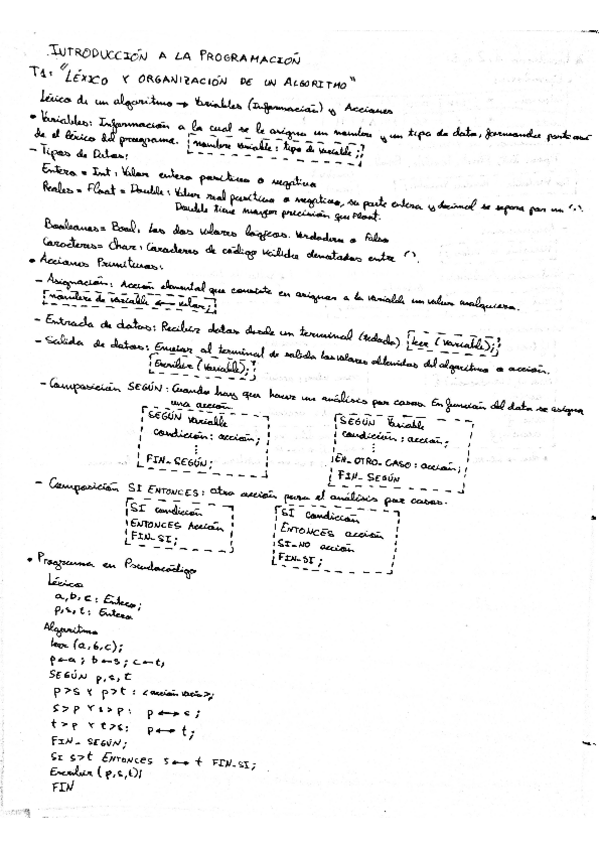 INTRODUCCIÓN A LA PROGRAMACIÓN
T1: "LÉXICO Y ORGANIZACIÓN DE UN ALGORITMO"
Léxico de un algoritmo → Variables (Información) y Acciones
• Variables: Información a la cual se le asigna un nombre y un tipo de dato, formando parte así
de el léxico del programa. nombre variable: tipo de variable;
- Tipos de Datos:
Entero = Int: Valor entero positivo o negativo
Reales = Float = Double: Valor real positivo o negativo, su parte entera y decimal se separa por un '.'.
Double tiene mayor precisión que Float.
Booleanos = Bool: Los dos valores lógicos. Verdadero o Falso
Caracteres = Char: Caracteres de código denotados entre ' '.
• Acciones Primitivas:
- Asignación: Acción elemental que consiste en asignar a la variable un valor cualquiera.
nombre de variable ← valor;
- Entrada de datos: Recibir datos desde un terminal (teclado) leer (variable);
- Salida de datos: Enviar al terminal de salida los valores obtenidos del algoritmo o acción.
Escribir (variable);
- Composición SEGÚN: Cuando hay que hacer un análisis por casos. En función del dato se asigna
una acción
SEGÚN variable
condición: acción;
⋮
FIN_SEGÚN;
SEGÚN variable
condición: acción;
⋮
EN_OTRO_CASO: acción;
FIN_SEGÚN
- Composición SI ENTONCES: otra acción para el análisis por casos.
SI condición
ENTONCES Acción
FIN_SI;
SI condición
ENTONCES acción
SI_NO acción
FIN_SI;
• Programa en Pseudocódigo
Léxico
a, b, c: Entero;
p, s, t: Entero
Algoritmo
leer (a, b, c);
p←a; b←s; c←t,
SEGÚN p, s, t
p>s Y p>t: <acción vacía>;
s>p Y s>p: p↔s;
t>p Y t>s: p↔t;
FIN_SEGÚN;
SI s>t ENTONCES s↔t FIN_SI;
Escribir (p, s, t);
FIN